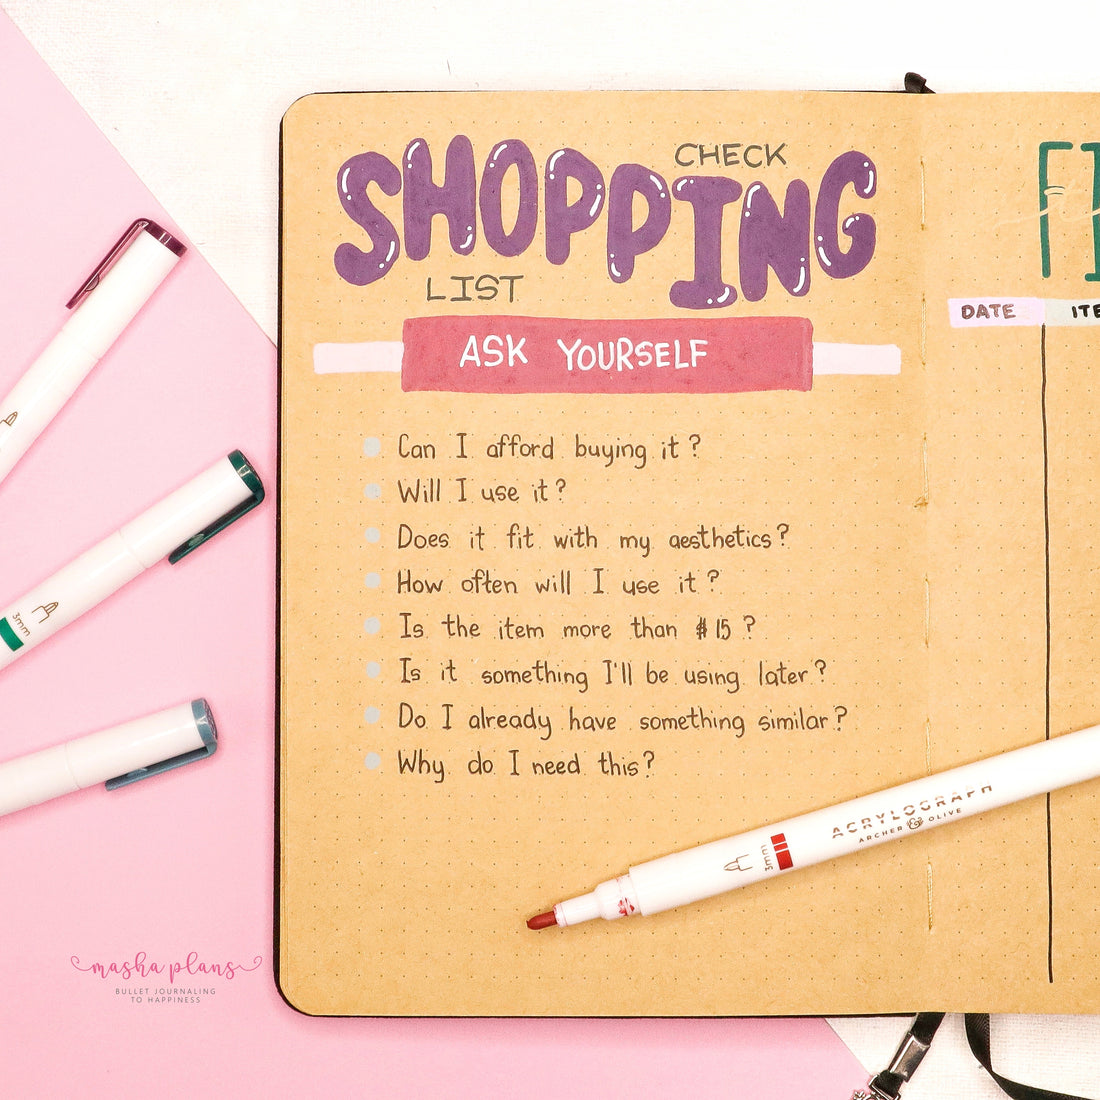 SHOPPING
CHECK
LIST
ASK YOURSELF
Can I afford buying it?
Will I use it?
Does it fit with my aesthetics?
How often will I use it?
Is the item more than $15?
Is it something I'll be using later?
Do I already have something similar?
Why do I need this?
DATE
ITE
FI
3mm
3mm
ACRYLOGRAPH
ARCHER & OLIVE
masha plans
BULLET JOURNALING
TO HAPPINESS